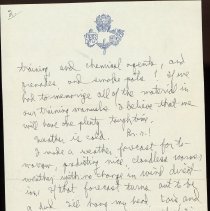 3.
training and chemical agents, and
grenades and smoke pots! If we
had to memorize all of the material in
our training manuals I believe that we
will have the plenty tough time.
Weather is cold. Brr!
I made a weather forecast for to-
morrow, predicting nice cloudless warm
weather with no change in wind direct-
ion. If that forecast turns out to be
a dud I'll hang my head. Lois and